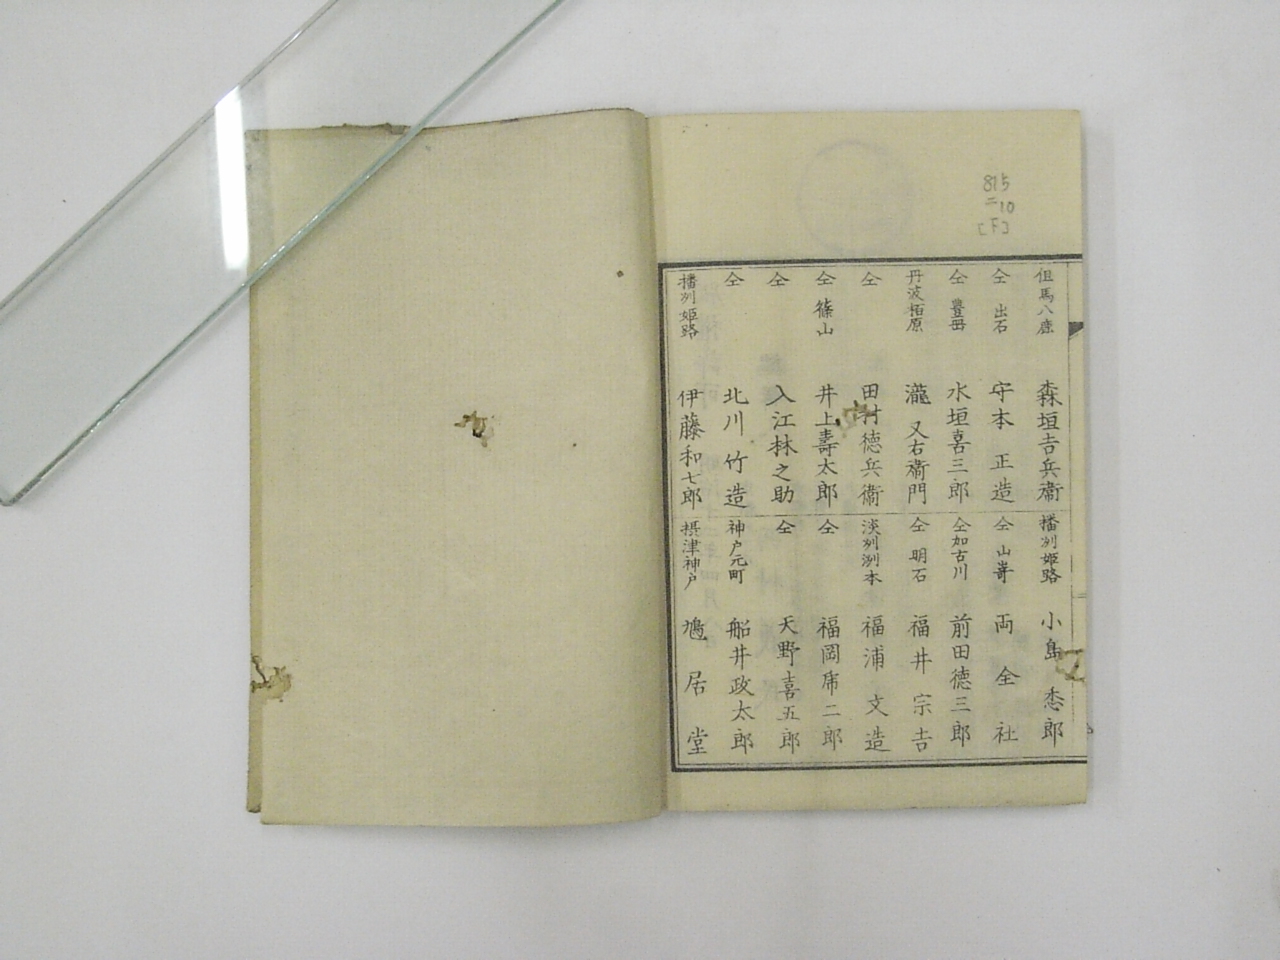 815
二10
[F]
但馬八鹿 森垣吉兵衞
仝 出石 守本正造
仝 豊岡 水垣喜三郎
丹波栢原 瀧又右衞門
仝 田村徳兵衞
仝 篠山 井上壽太郎
仝 入江林之助
仝 北川竹造
播刕姫路 伊藤和七郎
播刕姫路 小島 郎
仝 山嵜 両全社
仝 加古川 前田徳三郎
仝 明石 福井宗吉
淡刕洲本 福浦文造
仝 福岡席二郎
仝 天野喜五郎
神戸元町 船井政太郎
摂津神戸 鳩居堂